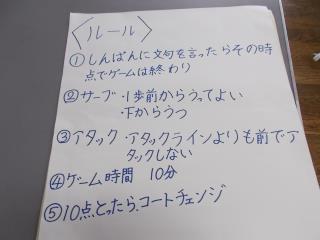 〈ルール〉
①しんぱんに文句を言ったらその時
点でゲームは終わり
②サーブ・1歩前からうってよい
・下からうつ
③アタック・アタックラインよりも前でア
タックしない
④ゲーム時間 10分
⑤10点とったら、コートチェンジ